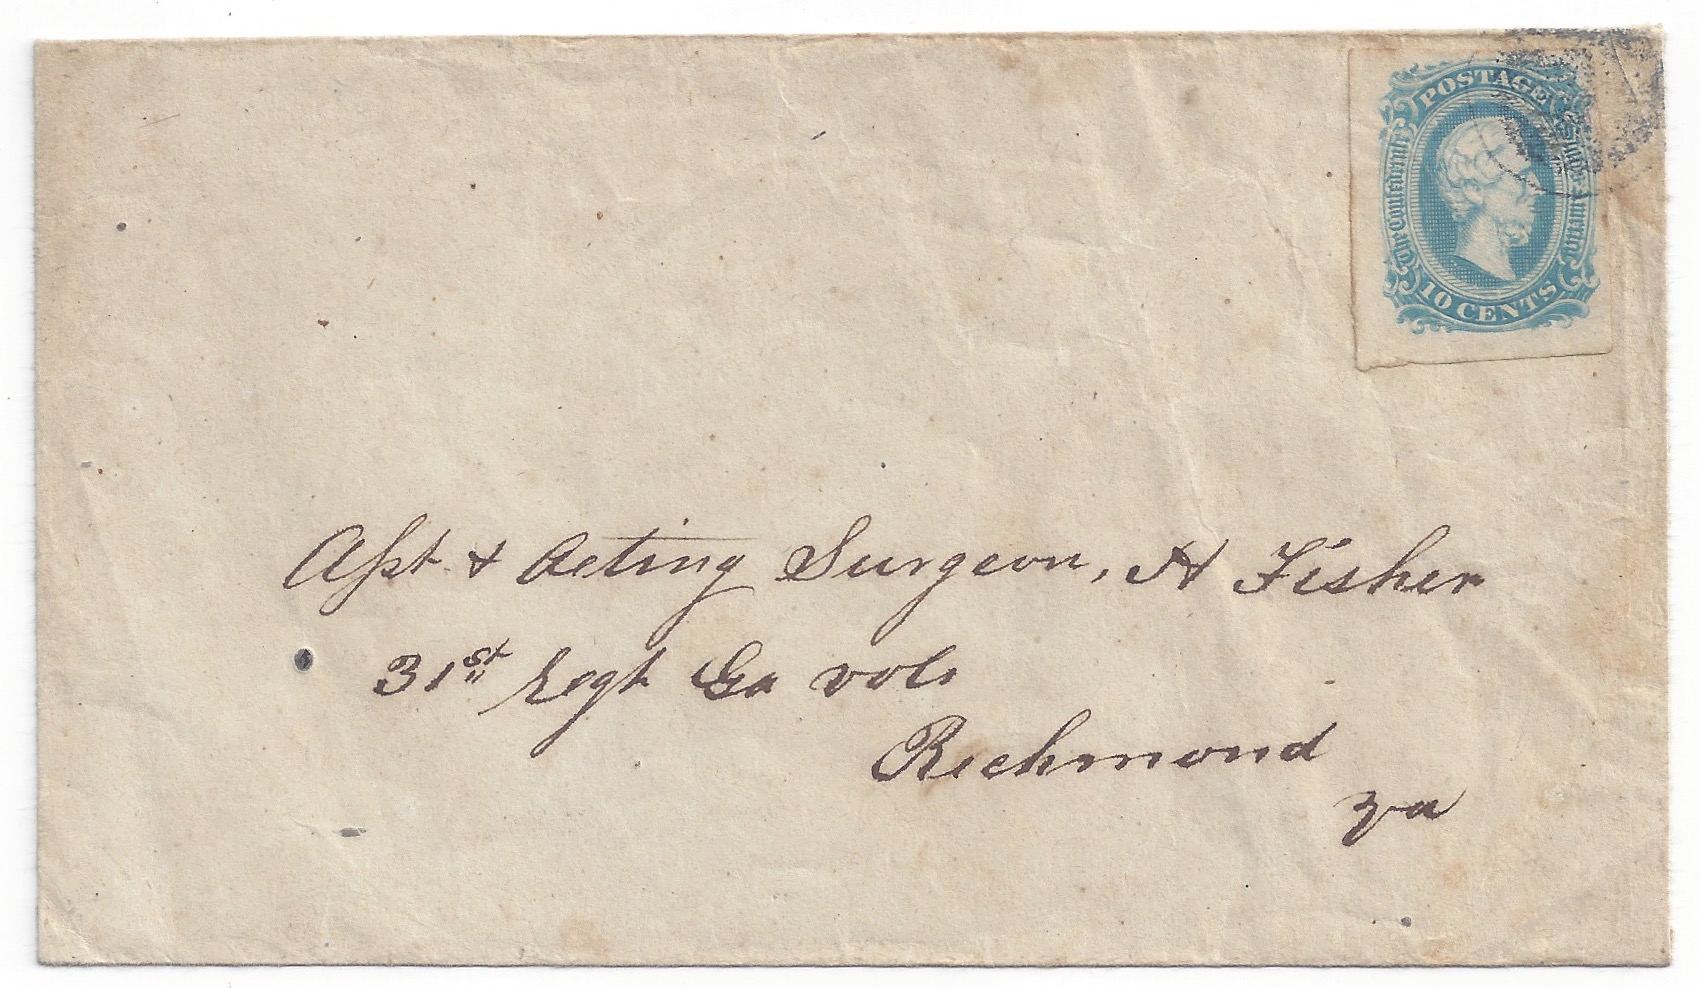 POSTAGE
The Confederate States of America
10 CENTS
Asst & Acting Surgeon, H Fisher
31st Regt Ga vols
Richmond
Va